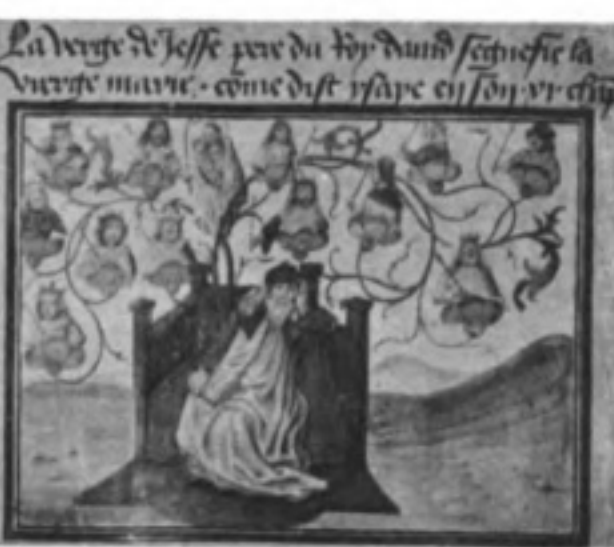 La verge de Jesse pere du Roy dauid segnefie la
vierge marie . cõme dist ysaye en son xi chap